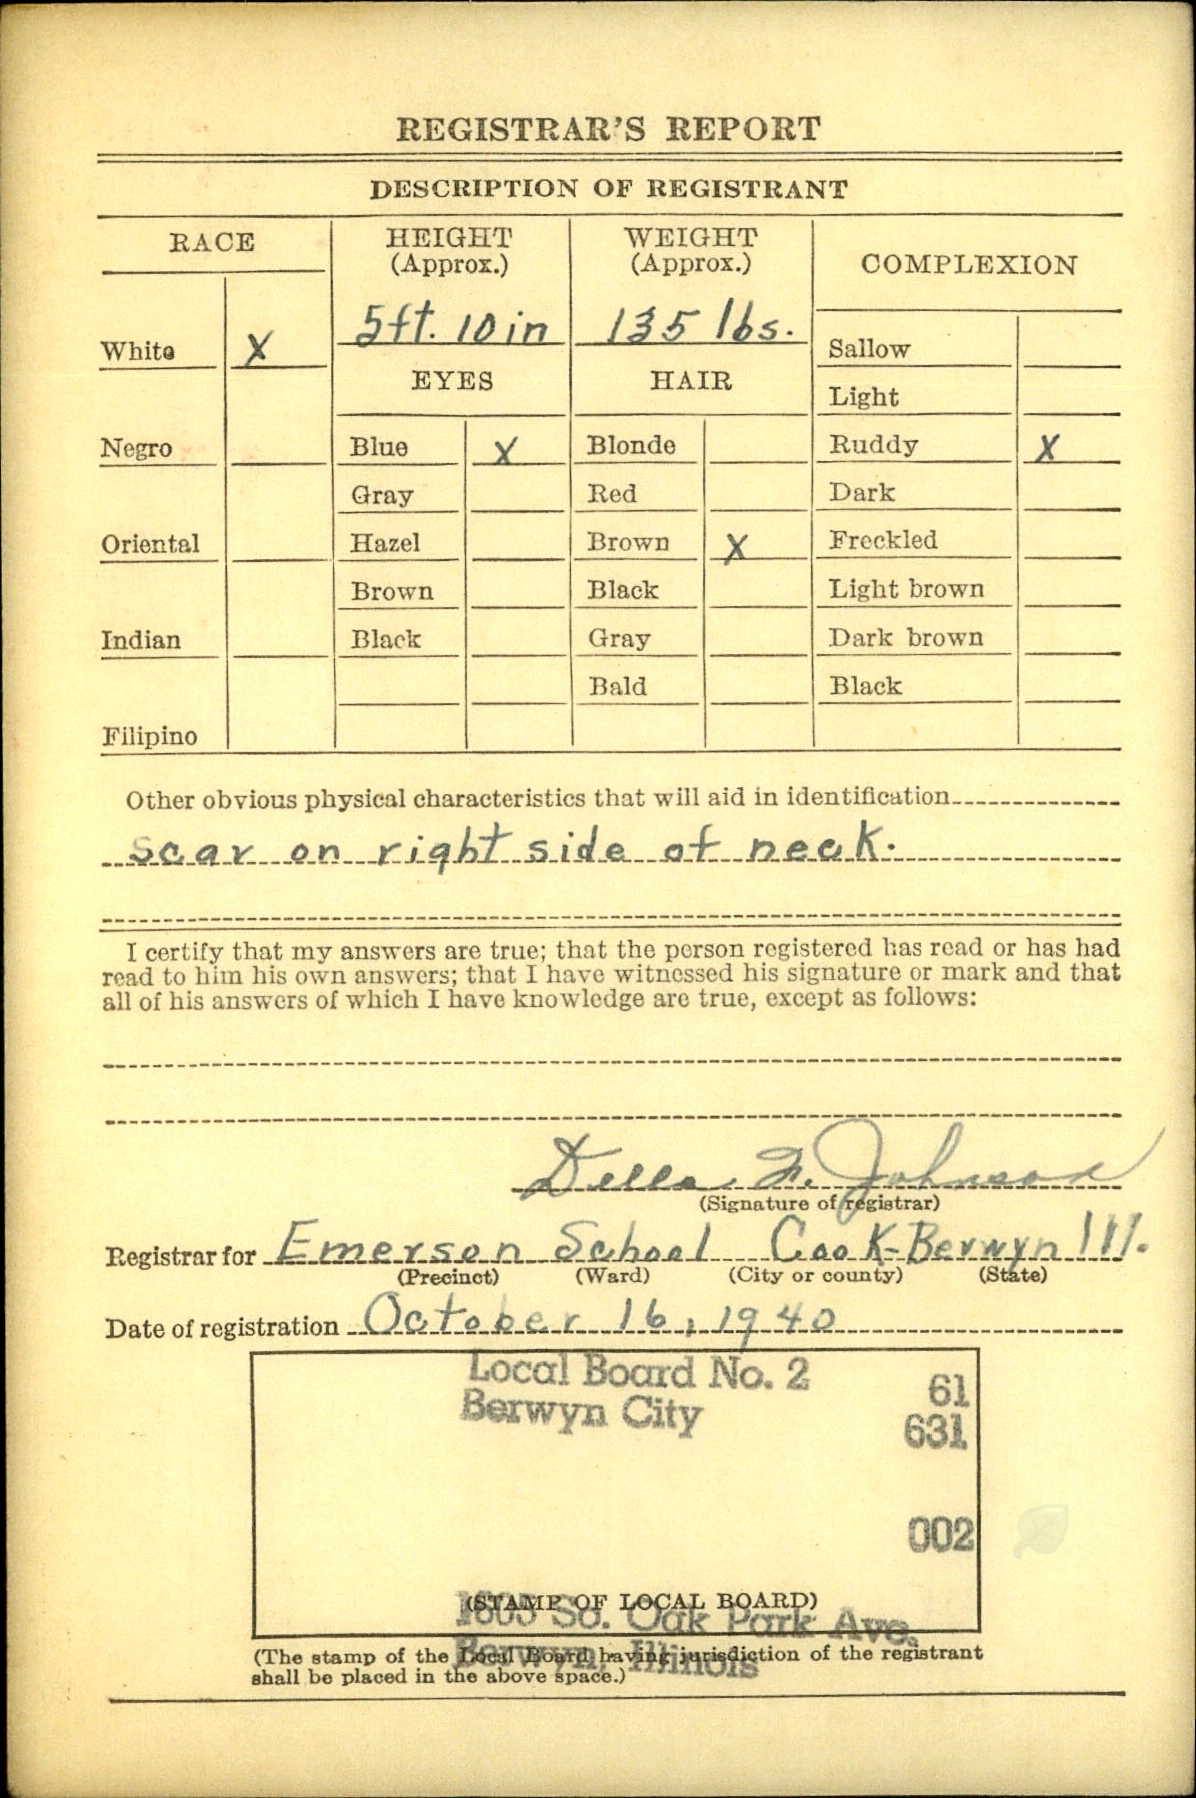 REGISTRAR'S REPORT
DESCRIPTION OF REGISTRANT
RACE
HEIGHT
(Approx.)
WEIGHT
(Approx.)
COMPLEXION
5 ft. 10 in
135 lbs.
White X
Sallow
EYES
HAIR
Light
Negro
Blue X
Blonde
Ruddy X
Gray
Red
Dark
Oriental
Hazel
Brown X
Freckled
Brown
Black
Light brown
Indian
Black
Gray
Dark brown
Bald
Black
Filipino
Other obvious physical characteristics that will aid in identification
Scar on right side of neck.
I certify that my answers are true; that the person registered has read or has had
read to him his own answers; that I have witnessed his signature or mark and that
all of his answers of which I have knowledge are true, except as follows:
Della F. Johnson
(Signature of registrar)
Registrar for Emerson School Cook-Berwyn Ill.
(Precinct) (Ward) (City or county) (State)
Date of registration October 16, 1940
Local Board No. 2 61
Berwyn City 631
002
(STAMP OF LOCAL BOARD)
1605 So. Oak Park Ave.
Berwyn, Illinois
(The stamp of the Local Board having jurisdiction of the registrant
shall be placed in the above space.)